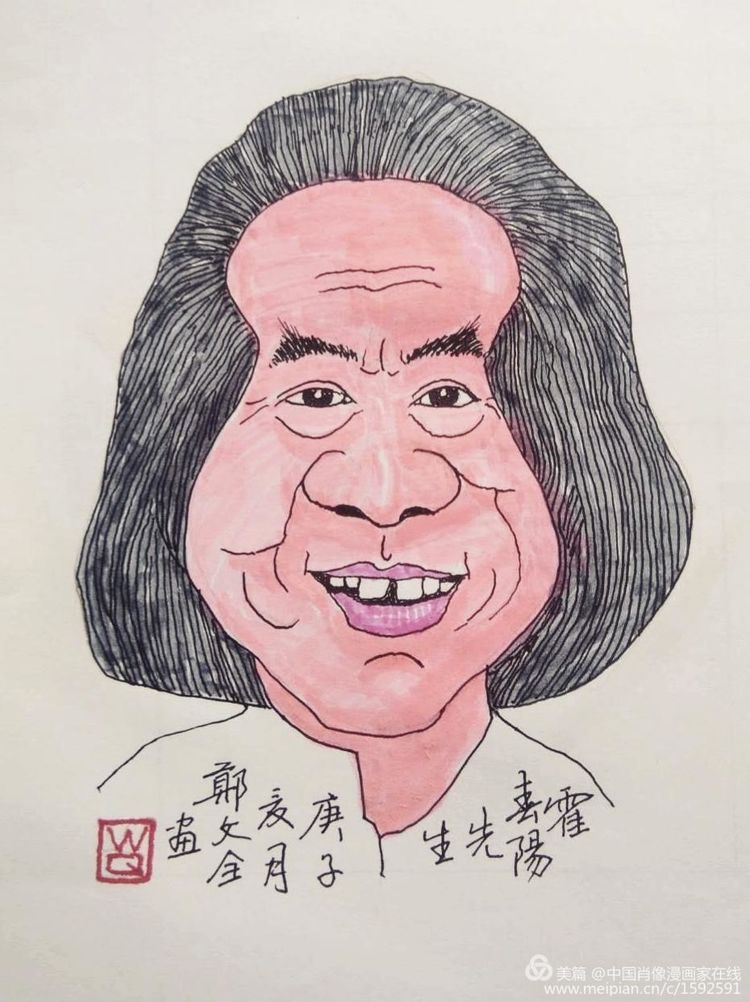 霍
春陽
先
生
庚子
亥月
鄭文全
畫
WQ
美篇 @中国肖像漫画家在线
www.meipian.cn/c/1592591